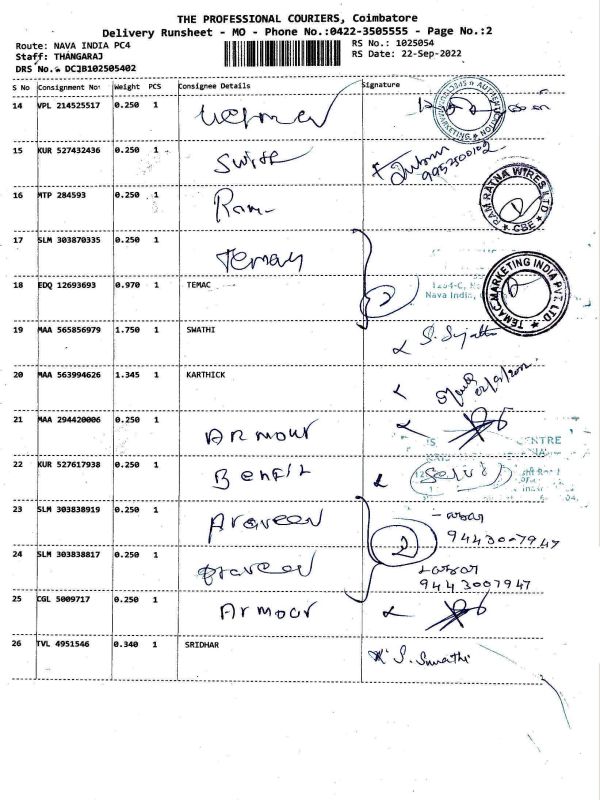 THE PROFESSIONAL COURIERS, Coimbatore
Delivery Runsheet - MO - Phone No.:0422-3505555 - Page No.:2
Route: NAVA INDIA PC4 RS No.: 1025054
Staff: THANGARAJ RS Date: 22-Sep-2022
DRS No.: DCJB102505402
S No Consignment No Weight PCS Consignee Details Signature
14 VPL 214525517 0.250 1
15 KUR 527432436 0.250 1 Swiss
9952500102
16 MTP 284593 0.250 1 Ram
RAM RATNA WIRES LTD
CBE
17 SLM 303870335 0.250 1 Temac
18 EDQ 12693693 0.970 1 TEMAC 2
1264-C, N
Nava India,
TEMAC MARKETING INDIA PVT LTD
19 MAA 565856979 1.750 1 SWATHI S. Sujatha
20 MAA 563994626 1.345 1 KARTHICK
21 MAA 294420006 0.250 1 Armour
22 KUR 527617938 0.250 1 Benfit Selvi
CENTRE
23 SLM 303838919 0.250 1 Praveen
9443007947
2
24 SLM 303838817 0.250 1 praveen
9443007947
25 CGL 5009717 0.250 1 Armour
26 TVL 4951546 0.340 1 SRIDHAR S. Swathi